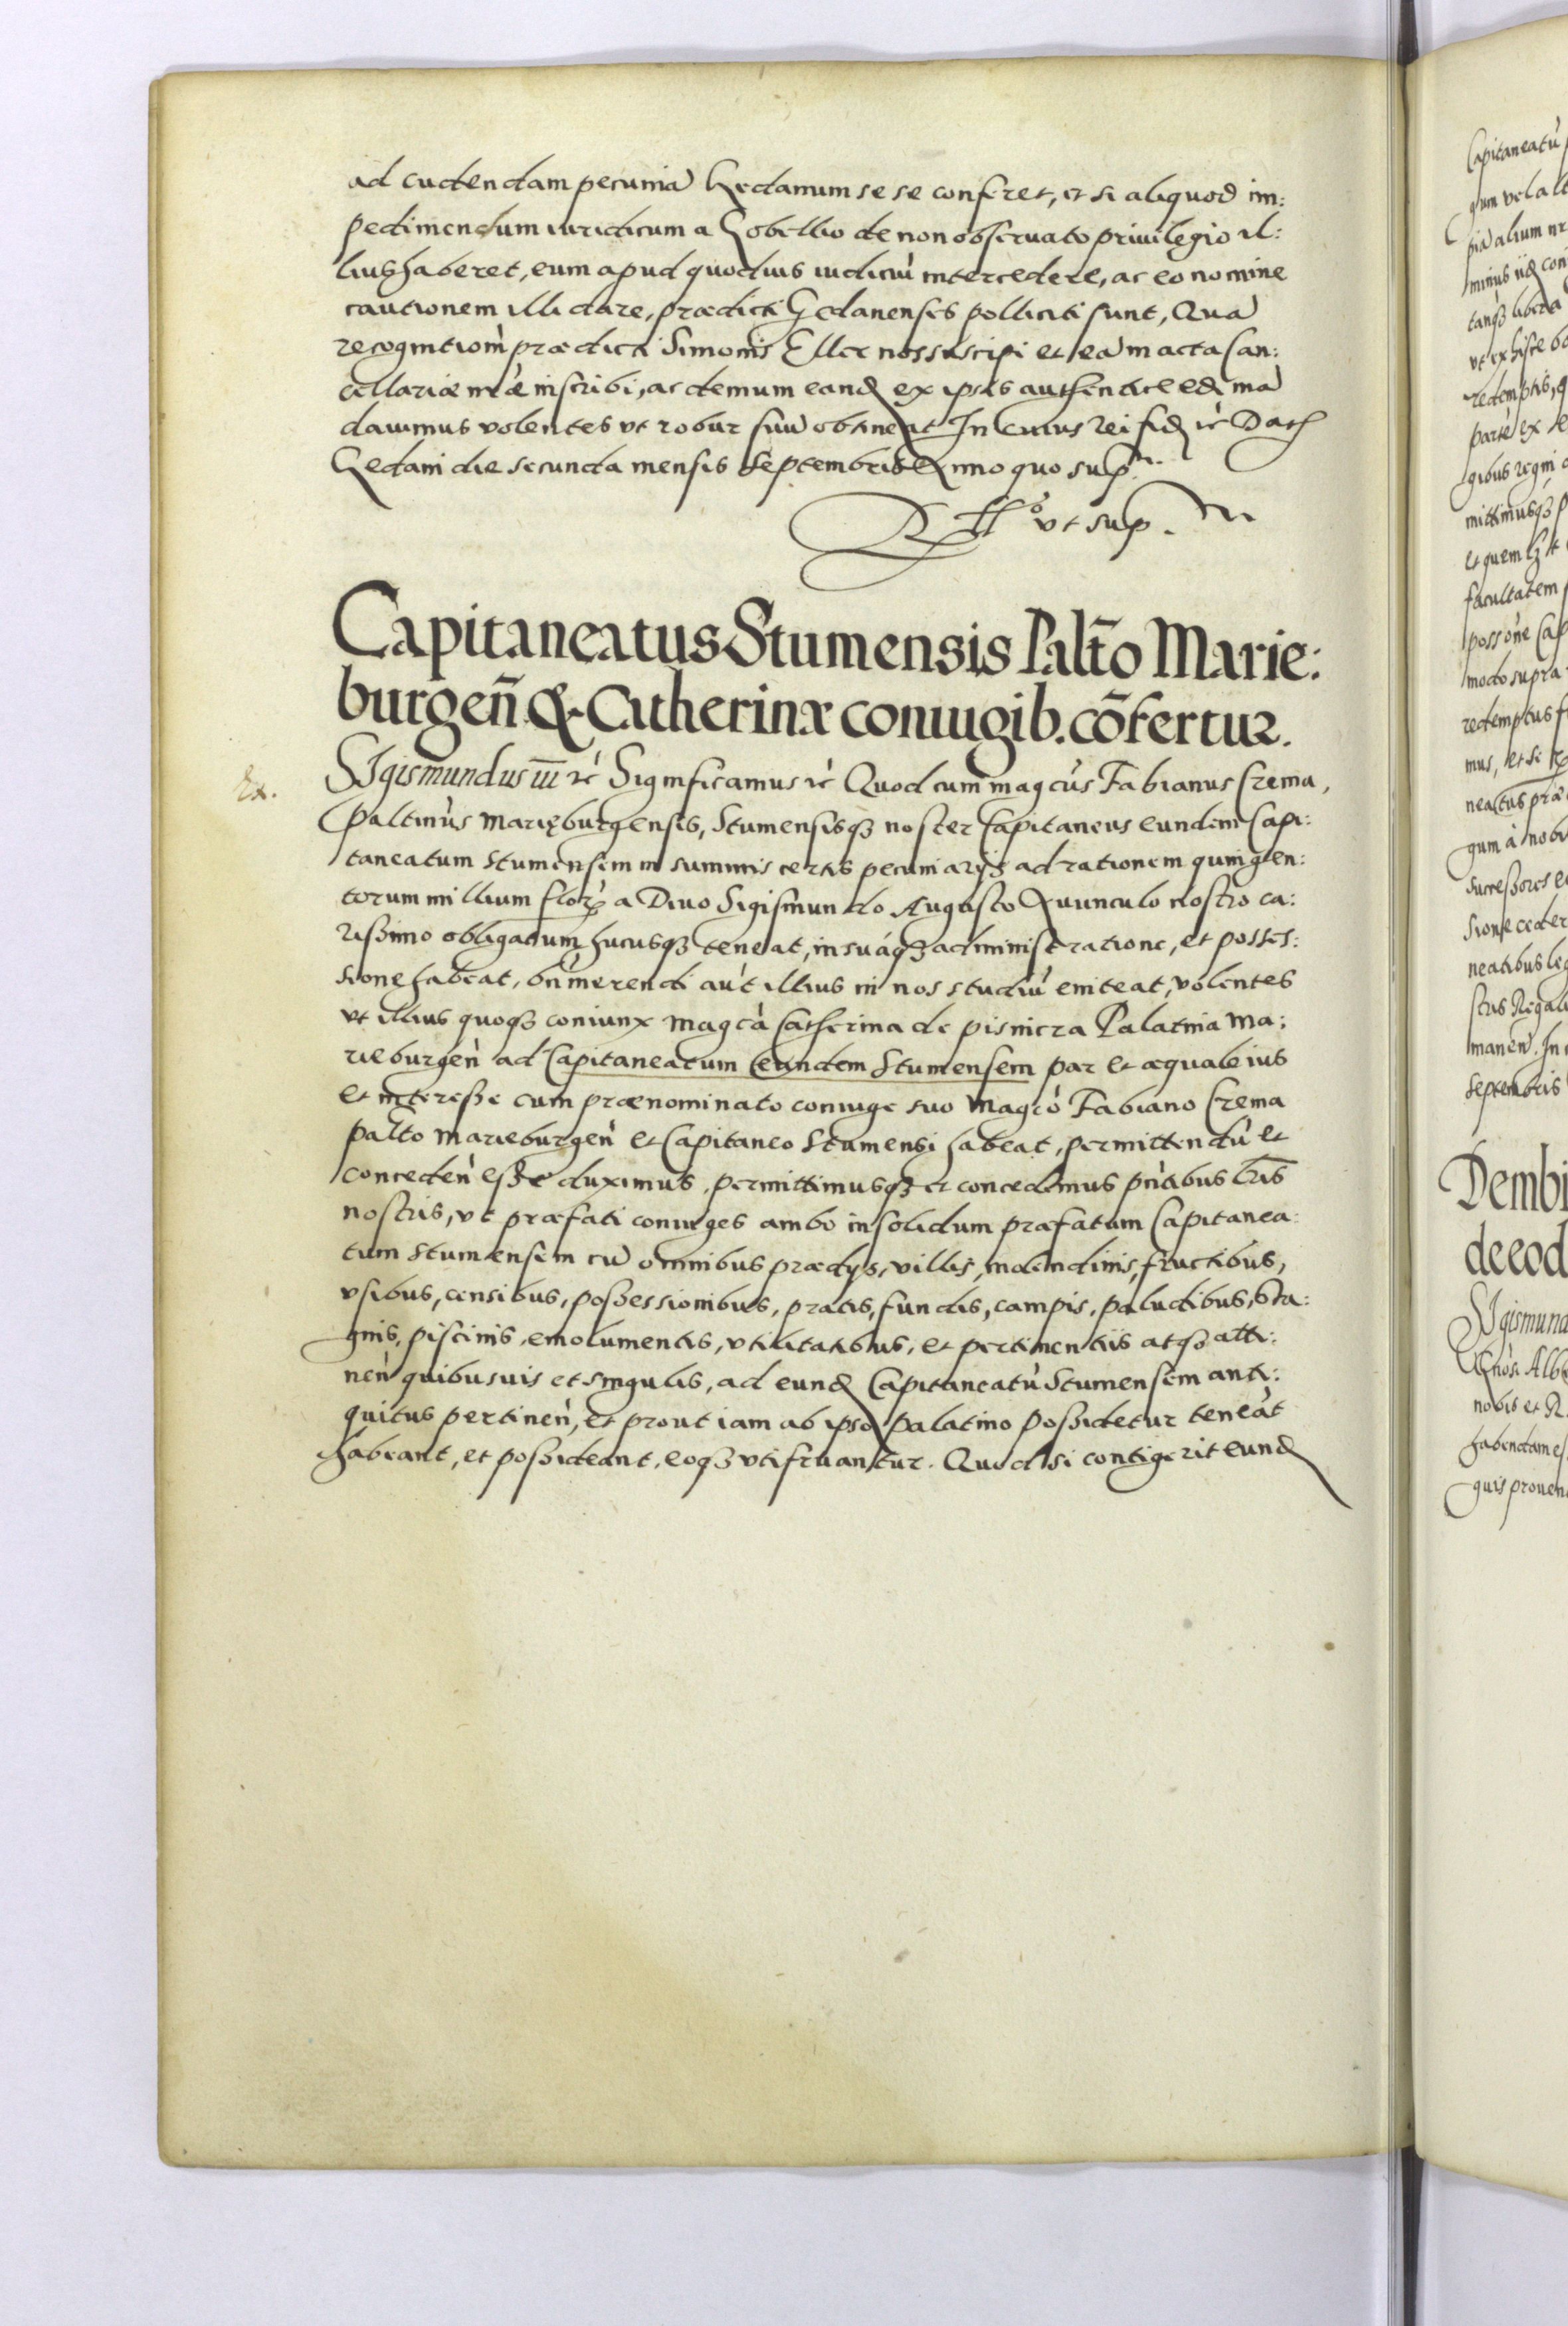 ad cudendam pecuniã Gedanum se se conferet, et si aliquod im:
pedimendum iuridicum a Gobellio de non obseruato priuilegio il:
lius haberet, eum apud quoduis iudiciũ intercedere, ac eo nomine
cautionem illi dare, prædicti Gedanenses polliciti sunt, Quã
recognitiom̃ prædicti Simonis Eller nos suscipi et eã in acta Can:
cellariæ nr̃æ inscribi, ac demum eand̃ ex ipsis authentice edi mã
dauimus volentes vt robur suũ obtineat In cuius rei fid̃ rc̃ Dat̃
Gedani die secunda mensis Septembris Anno quo sup̃ra.
Rl̃lo vt sup.ra
Capitaneatus Stumensis Palt̃o Marie:
burgeñ & Catherinæ coniugib. cõfertur.
Ex.
Sigismundus iii rc̃ Significamus rc̃ Quod cum magcũs Fabianus Crema,
Paltinũs Marięburgensis, Stumensisq₃ noster Capitaneus eundem Capi:
taneatum Stumensem in summis certis pecuniarijs ad rationem quingen:
torum millium flor̃ a Diuo Sigismundo Augusto Auunculo nostro ca:
rissimo obligatum hucusq₃ teneat, in suáq₃ administratione, et posses:
sione habeat, bñmerendi aũt illius in nos studiũ eniteat, volentes
vt illius quoq₃ coniunx Magcã Catherina de pisnicza Palatina Ma:
rieburgeñ ad Capitaneatum eundem Stumensem par et æquale ius
et interesse cum prænominato coniuge suo Magcõ Fabiano Crema
palt̃o Marieburgeñ et Capitaneo Stumensi habeat, permittendũ et
concedeñ esse duximus, permittimusq₃ et concedimus pñtibus lr̃is
nostris, vt præfati coniuges ambo in solidum præfatum Capitanea:
tum Stumensem cũ omnibus prædijs, villis, molendinis, fructibus,
vsibus, censibus, possessionibus, pratis, fundis, campis, paludibus, sta:
gnis, piscinis, emolumentis, vtilitatibus, et pertinentiis atq₃ atti:
neñ quibusuis et singulis, ad eund̃ Capitaneatũ Stumensem anti:
quitus pertineñ, et prout iam ab ipso palatino possidetur teneãt
habeant, et possideant, eoq₃ vtifruantur. Quod si contigerit eund̃
Capitaneatũ
gum vel alt
piã alium nr
minus iid̃ con
tanq₃ libera
redemptis, q
parte ex se
gibus regni
mittimusq₃ p
et quem
facultatem
possoñe Cap
modo supra
redemptus f
mus, et si
neatus præ
gum à nobi
Successores e
sione ceder
neatibus leg
stris Regali
maneñ. In
Septembris
Dembi
de eod
Sigismund
nobis et R
habendam es
quis prouen